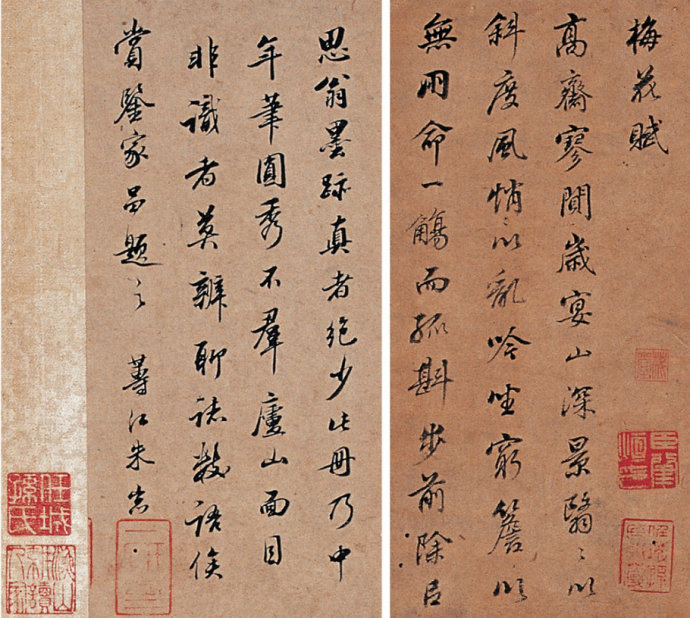 梅花賦
高齋寥闃歲宴山深景翳〻以
斜度風悄〻以亂吟坐窮簷以
無朋命一觴而孤斟步前除以
思翁墨跡真者絕少此冊乃中
年筆圓秀不羣廬山面目
非識者莫辨聊誌數語俟
賞鑒家品題之 江朱